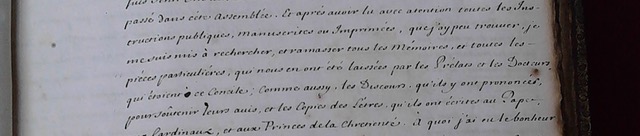 passé dans cète Assemblée. Et aprés avoir lu avec atention toutes les Ins-
tructions publiques, manuscrites ou Imprimées, que j'ay peu trouver, je
me suis mis à rechercher, et ramasser tous les Mémoires, et toutes les
piéces particuliéres, qui nous en ont été laissées par les Prélats et les Docteurs,
qui étoient à ce Concile; Comme aussy, les Discours, qu'ils y ont prononcés,
pour soutenir leurs avis, et les Copies des Létres, qu'ils ont écrites au Pape,
Cardinaux, et aux Princes de la Chretienté. À quoi j'ai eû le bonheur